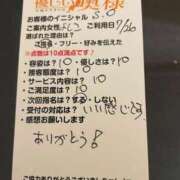 優しい奥様
お客様のイニシャル S.O
ご案内女性 よしこ ご利用日 7/26
選ばれた理由は？
ご指名・フリー・好みを伝えた
☆数字は10点満点です！
・容姿は？ 10 ・優しさは？ 10
・接客態度は？ 10
・サービス内容は？ 10
・ご満足度は？ 10
・次回指名は？する・しない
・受付の対応は？ いい感じです
・感想お願いします
ありがとう！
ご協力ありがとうございました